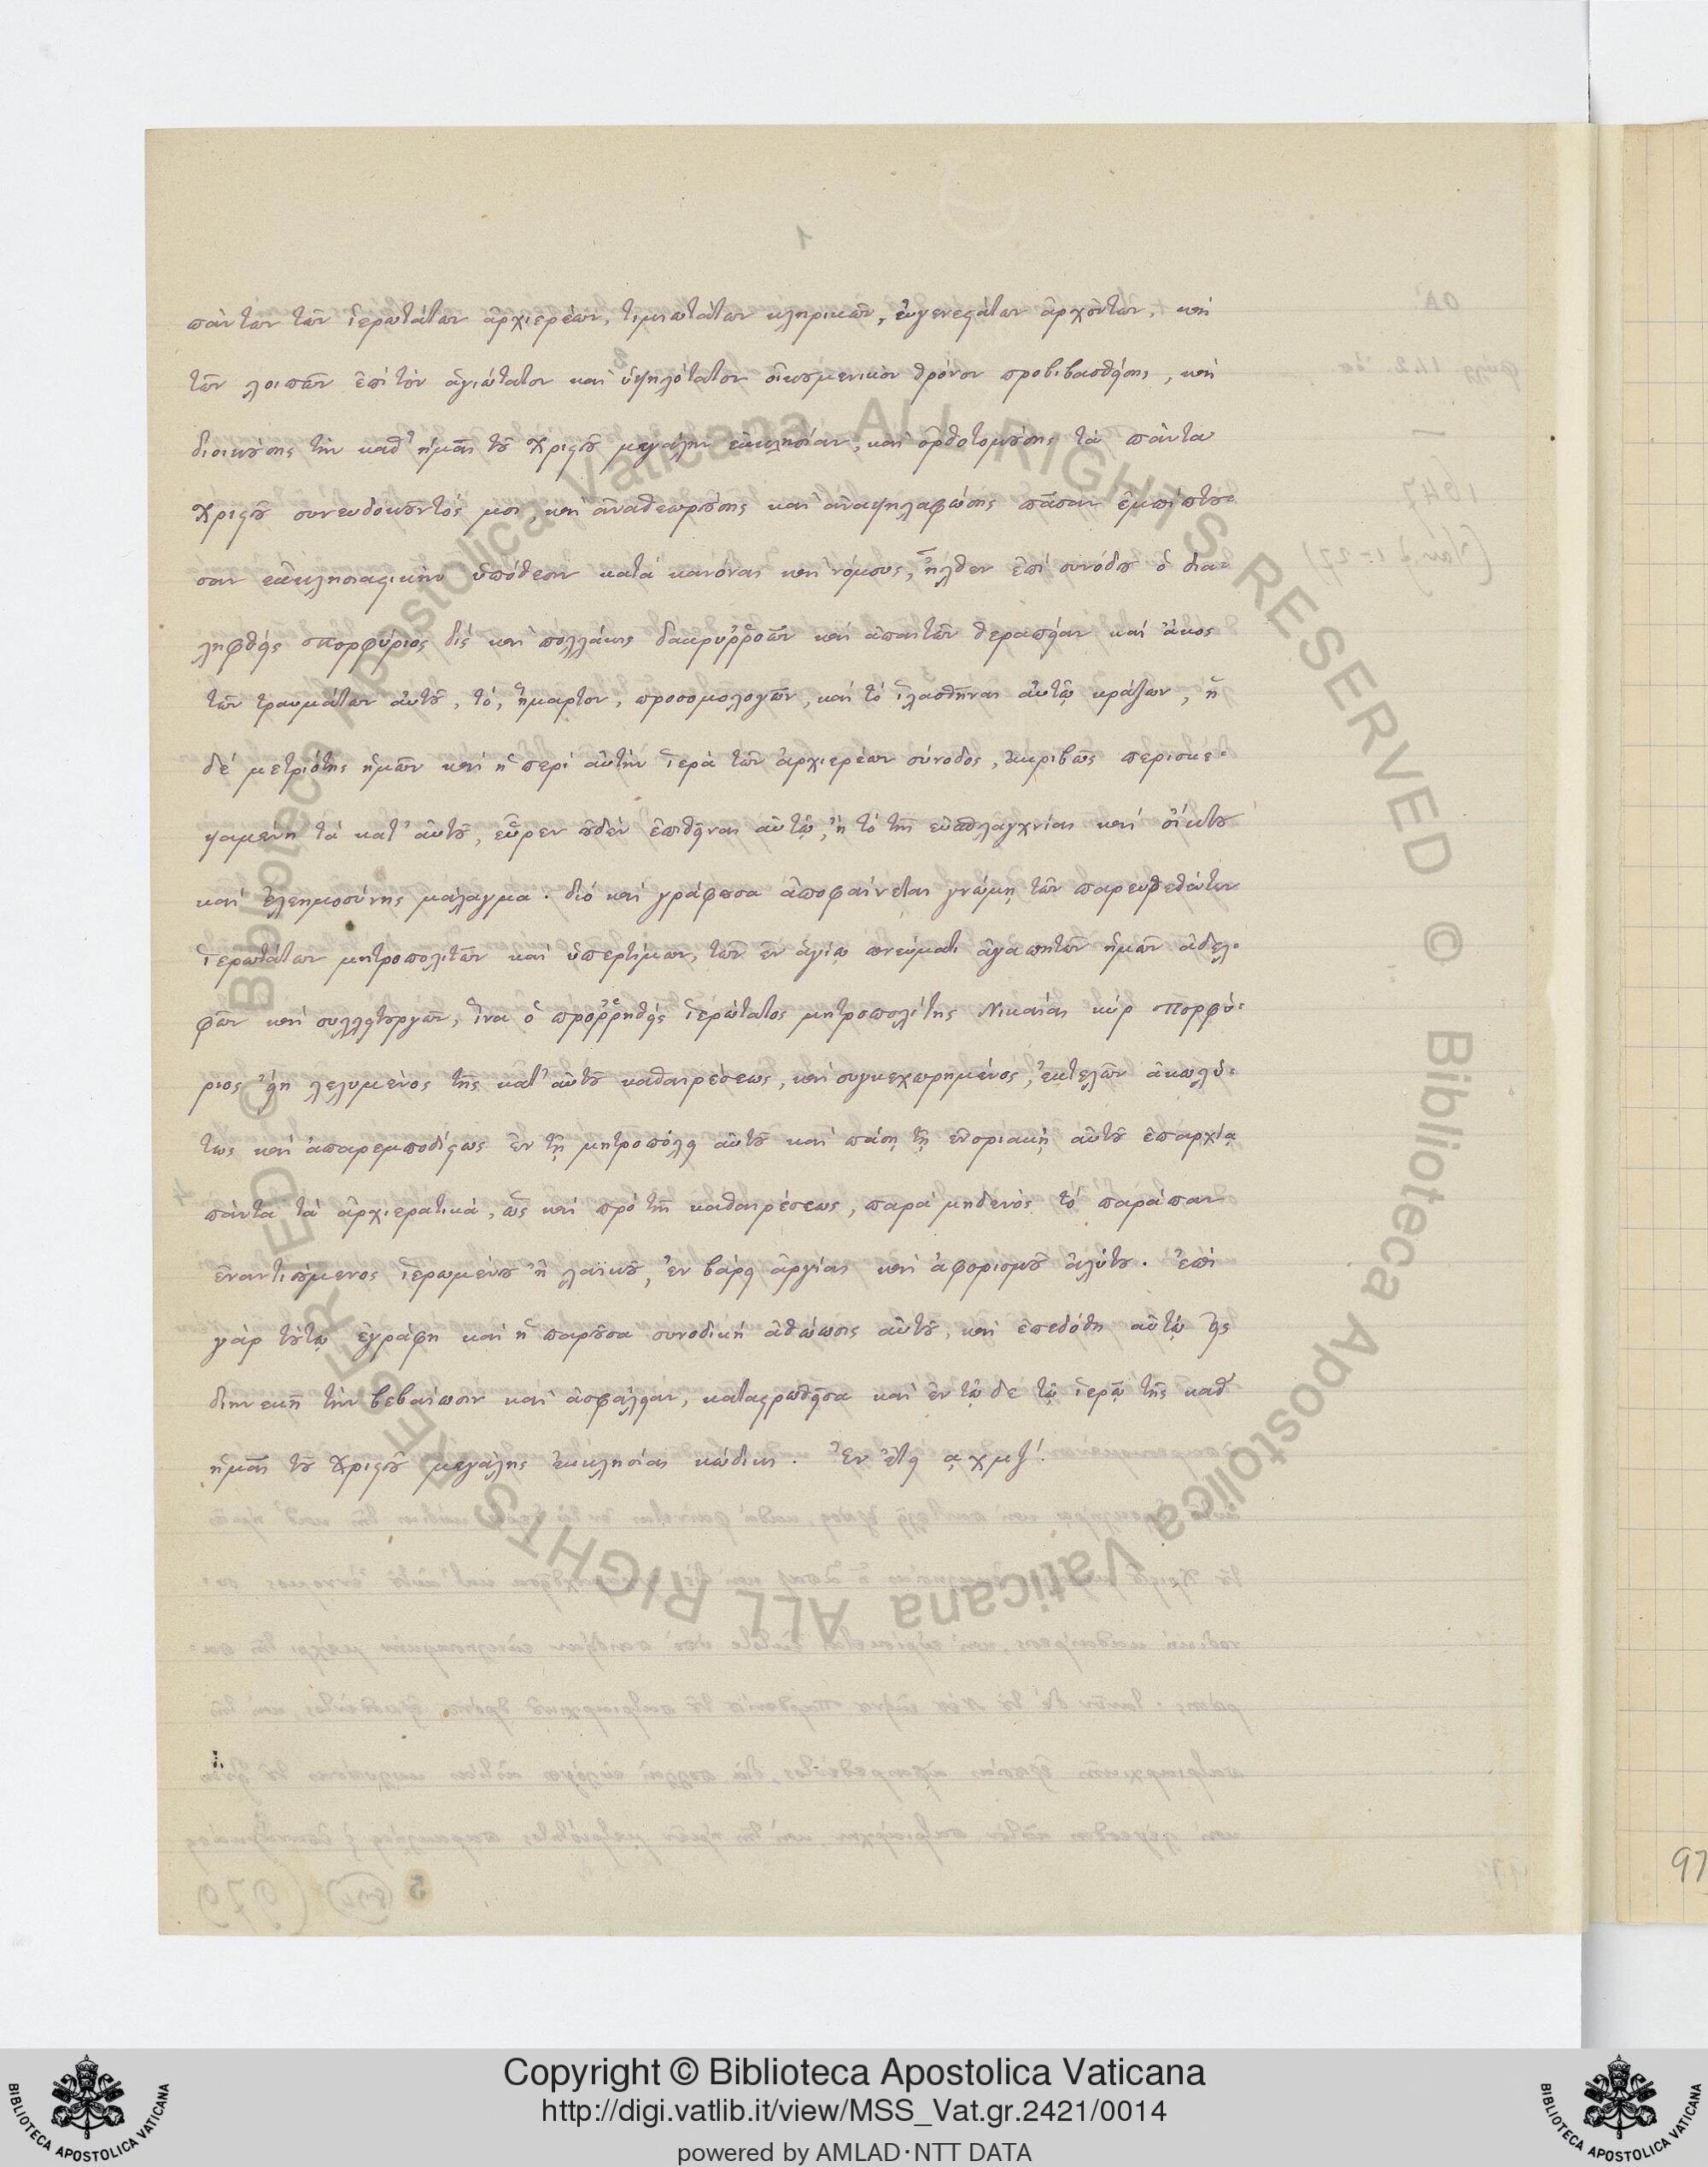 πάντων τῶν ἱερωτάτων ἀρχιερέων, τιμιωτάτων κληρικῶν, εὐγενεστάτων ἀρχόντων, καὶ
τῶν λοιπῶν ἐπὶ τὸν ἁγιώτατον καὶ ὑψηλότατον οἰκουμενικὸν θρόνον προβιβασθείσης, καὶ
διοικούσης τὴν καθ' ἡμᾶς τοῦ Χριστοῦ μεγάλην ἐκκλησίαν, καὶ ὀρθοτομούσης τὰ πάντα
Χριστοῦ συνευδοκοῦντός μοι, καὶ ἀναθεωρούσης καὶ ἀναψηλαφώσης πᾶσαν ἐμπίπτου-
σαν ἐκκλησιαστικὴν ὑπόθεσιν κατὰ κανόνας καὶ νόμους, ἦλθεν ἐπὶ συνόδου ὁ δια-
ληφθεὶς Πορφύριος δὶς καὶ πολλάκις δακρυῤῥοῶν καὶ ἀπαιτῶν θεραπείαν καὶ ἄκος
τῶν τραυμάτων αὐτοῦ, τὸ, ἥμαρτον, προσομολογῶν, καὶ τὸ ἱλασθῆναι αὐτῷ κράζων, ἡ
δὲ μετριότης ἡμῶν καὶ ἡ περὶ αὐτὴν ἱερὰ τῶν ἀρχιερέων σύνοδος, ἀκριβῶς περισκε-
ψαμένη τὰ κατ' αὐτοῦ, εὗρεν οὐδὲν ἐπιθεῖναι αὐτῷ, ἢ τὸ τῆς εὐσπλαγχνίας καὶ οἴκτου
καὶ ἐλεημοσύνης μάλαγμα. διὸ καὶ γράφουσα ἀποφαίνεται γνώμῃ τῶν παρευρεθέντων
ἱερωτάτων μητροπολιτῶν καὶ ὑπερτίμων, τῶν ἐν ἁγίῳ πνεύματι ἀγαπητῶν ἡμῶν ἀδελ-
φῶν καὶ συλλειτουργῶν, ἵνα ὁ προῤῥηθεὶς ἱερώτατος μητροπολίτης Νικαίας κὺρ Πορφύ-
ριος εἴη λελυμένος τῆς κατ' αὐτοῦ καθαιρέσεως, καὶ συγκεχωρημένος, ἐκτελῶν ἀκωλύ-
τως καὶ ἀπαρεμποδίστως ἐν τῇ μητροπόλει αὐτοῦ καὶ πάσῃ τῇ ἐνοριακῇ αὐτοῦ ἐπαρχίᾳ
πάντα τὰ ἀρχιερατικὰ, ὡς καὶ πρὸ τῆς καθαιρέσεως, παρὰ μηδενὸς τὸ παράπαν
ἐναντιούμενος ἱερωμένου ἢ λαϊκοῦ, ἐν βάρει ἀργίας καὶ ἀφορισμοῦ ἀλύτου. ἐπὶ
γὰρ τούτῳ ἐγράφη καὶ ἡ παροῦσα συνοδικὴ ἀθώωσις αὐτοῦ, καὶ ἐπεδόθη αὐτῷ εἰς
διηνεκῆ τὴν βεβαίωσιν καὶ ἀσφάλειαν, καταστρωθεῖσα καὶ ἐν τῷ δε τῷ ἱερῷ τῆς καθ'
ἡμᾶς τοῦ Χριστοῦ μεγάλης ἐκκλησίας κώδικι. Ἐν ἔτει ͵αχμζ'.
97
Biblioteca Apostolica Vaticana ALL RIGHTS RESERVED © Biblioteca Apostolica Vaticana ALL RIGHTS RESERVED ©
Copyright © Biblioteca Apostolica Vaticana
http://digi.vatlib.it/view/MSS_Vat.gr.2421/0014
powered by AMLAD·NTT DATA
BIBLIOTECA APOSTOLICA VATICANA
BIBLIOTECA APOSTOLICA VATICANA